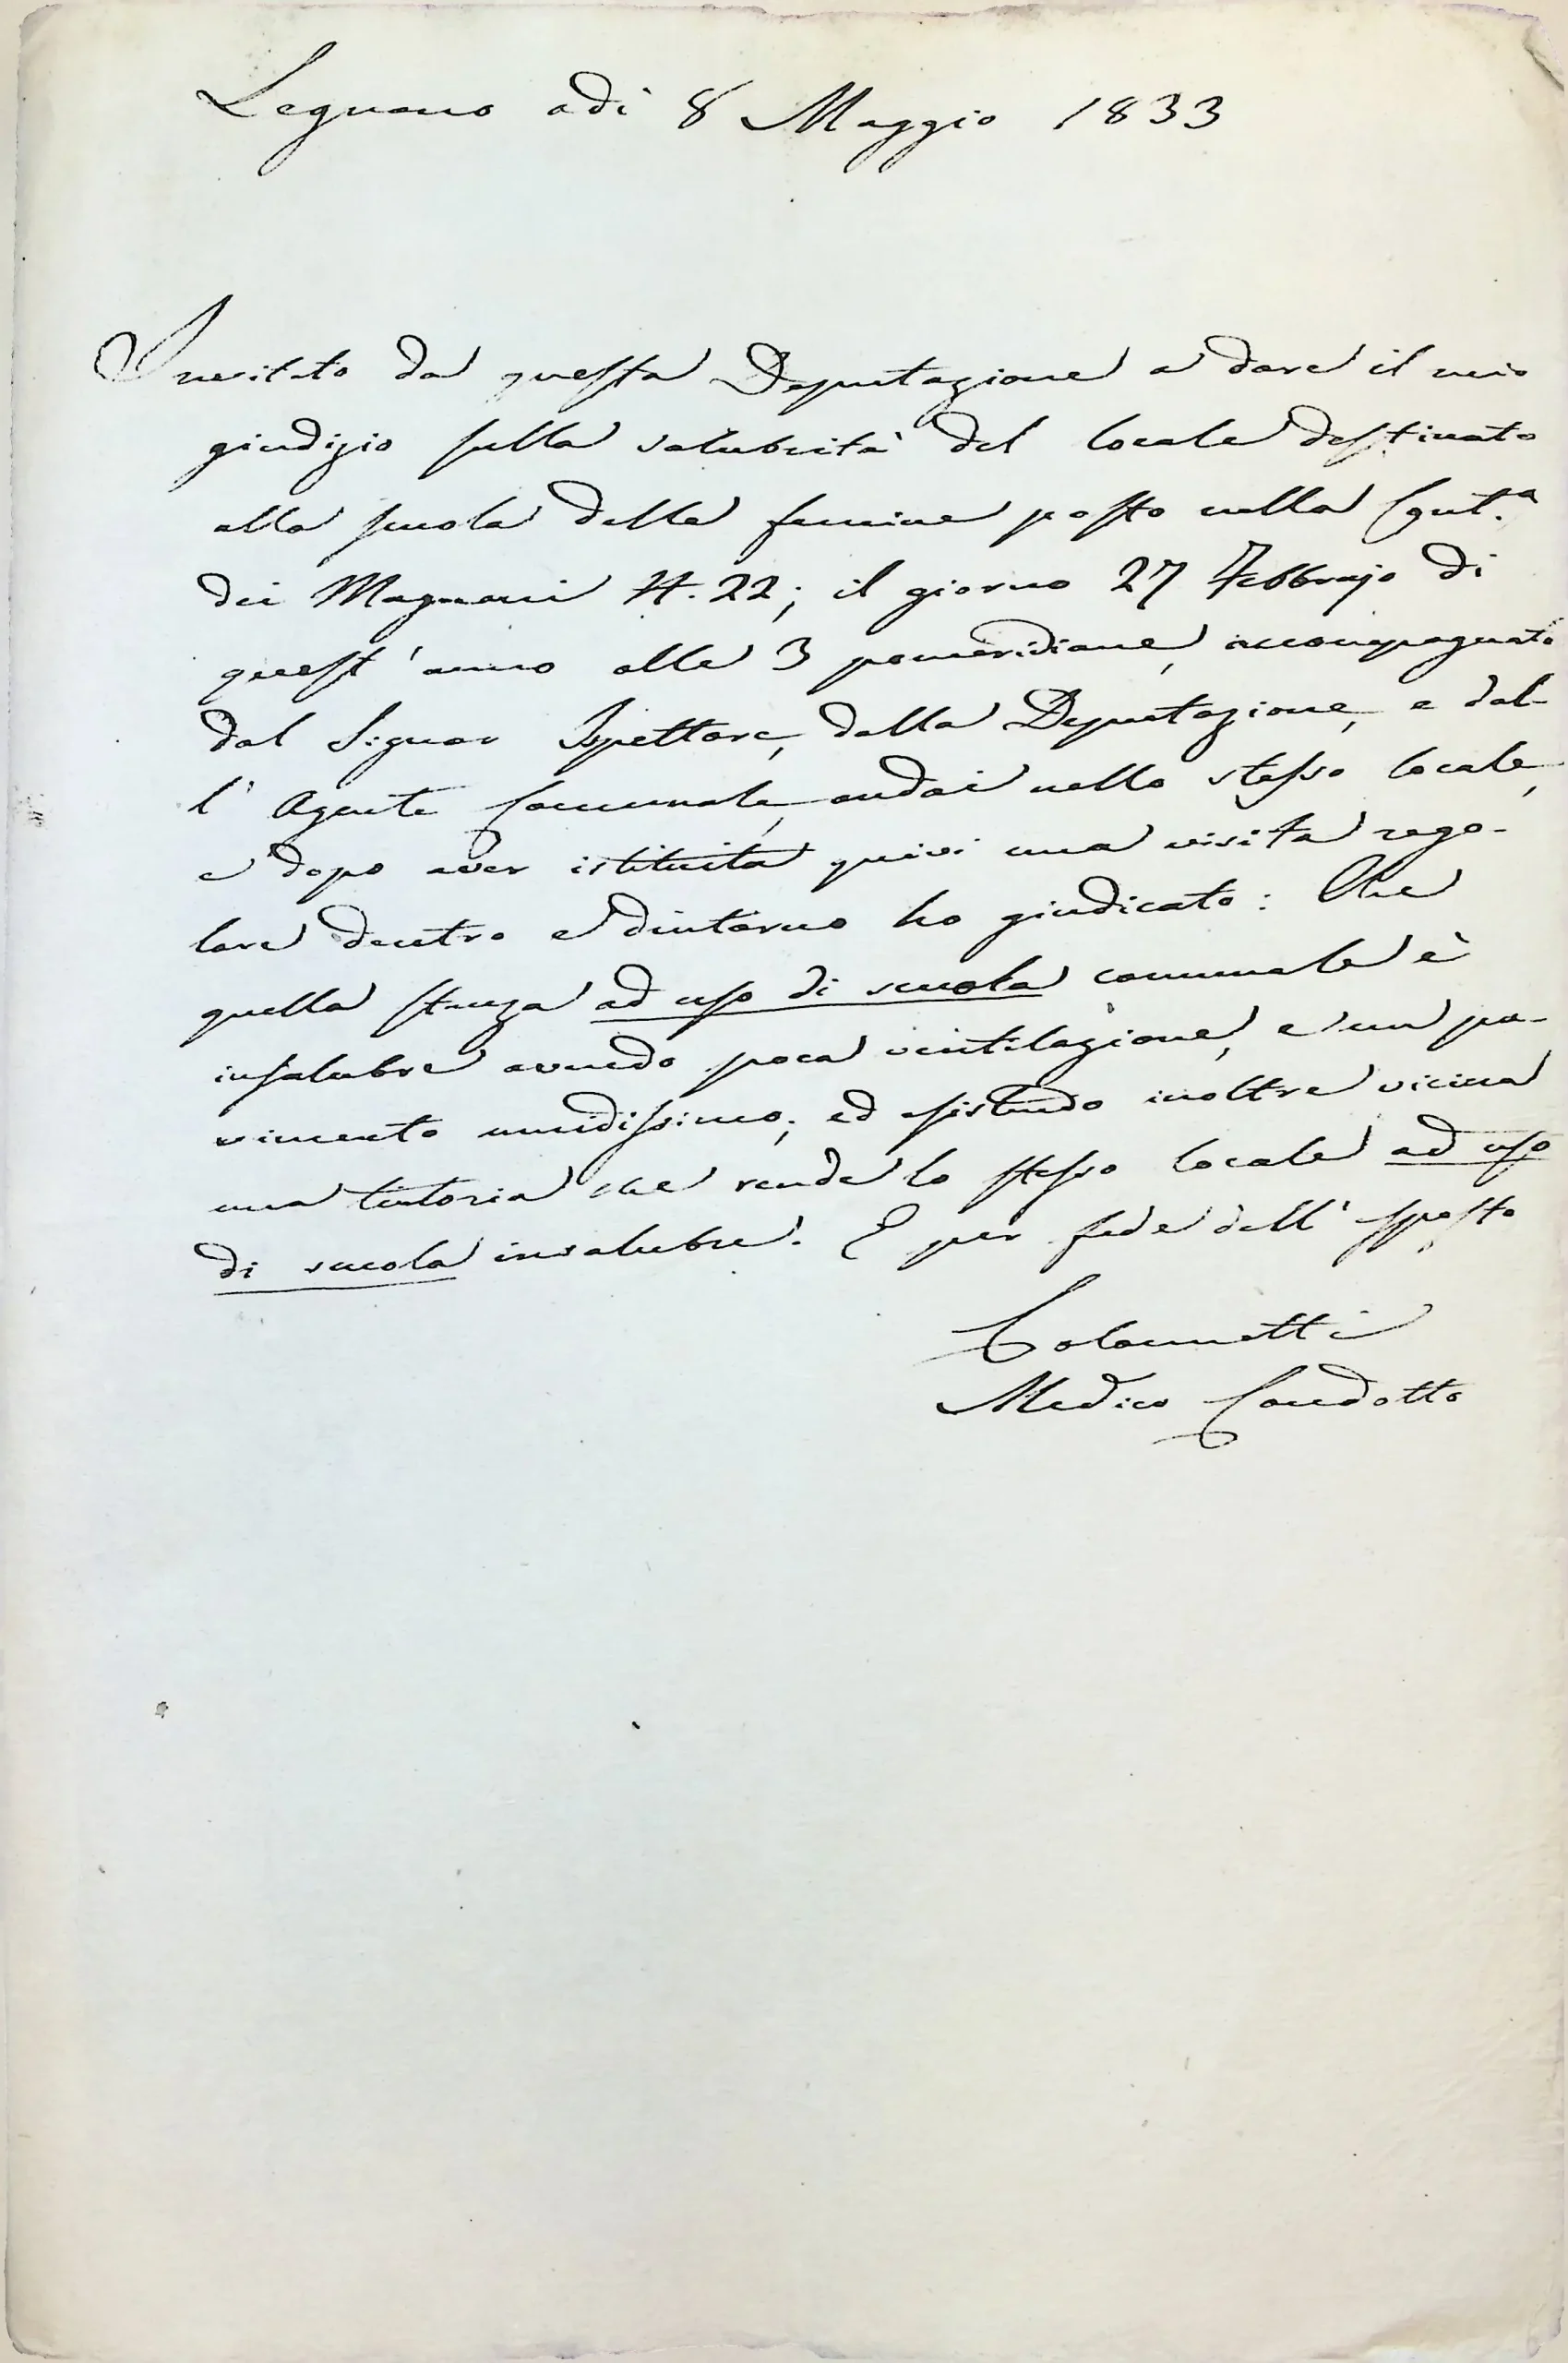 Legnano adì 8 Maggio 1833
Invitato da questa Deputazione a dare il mio
giudizio sulla salubrità del locale destinato
alla scuola delle femine posto nella Cont.a
dei Magnani N. 22; il giorno 27 Febbrajo di
quest'anno alle 3 pomeridiane, accompagnato
dal Signor Ispettore, dalla Deputazione, e dal-
l'Agente Comunale, andai nello stesso locale,
e dopo aver istituita quivi una visita rego-
lare dentro e dintorno ho giudicato: Che
quella stanza ad uso di scuola comunale è
insalubre avendo poca ventilazione, e un pa-
vimento umidissimo; ed esistendo inoltre vicina
una tintoria che rende lo stesso locale ad uso
di scuola insalubre. E per fede dell'esposto
Colonnetti
Medico Condotto